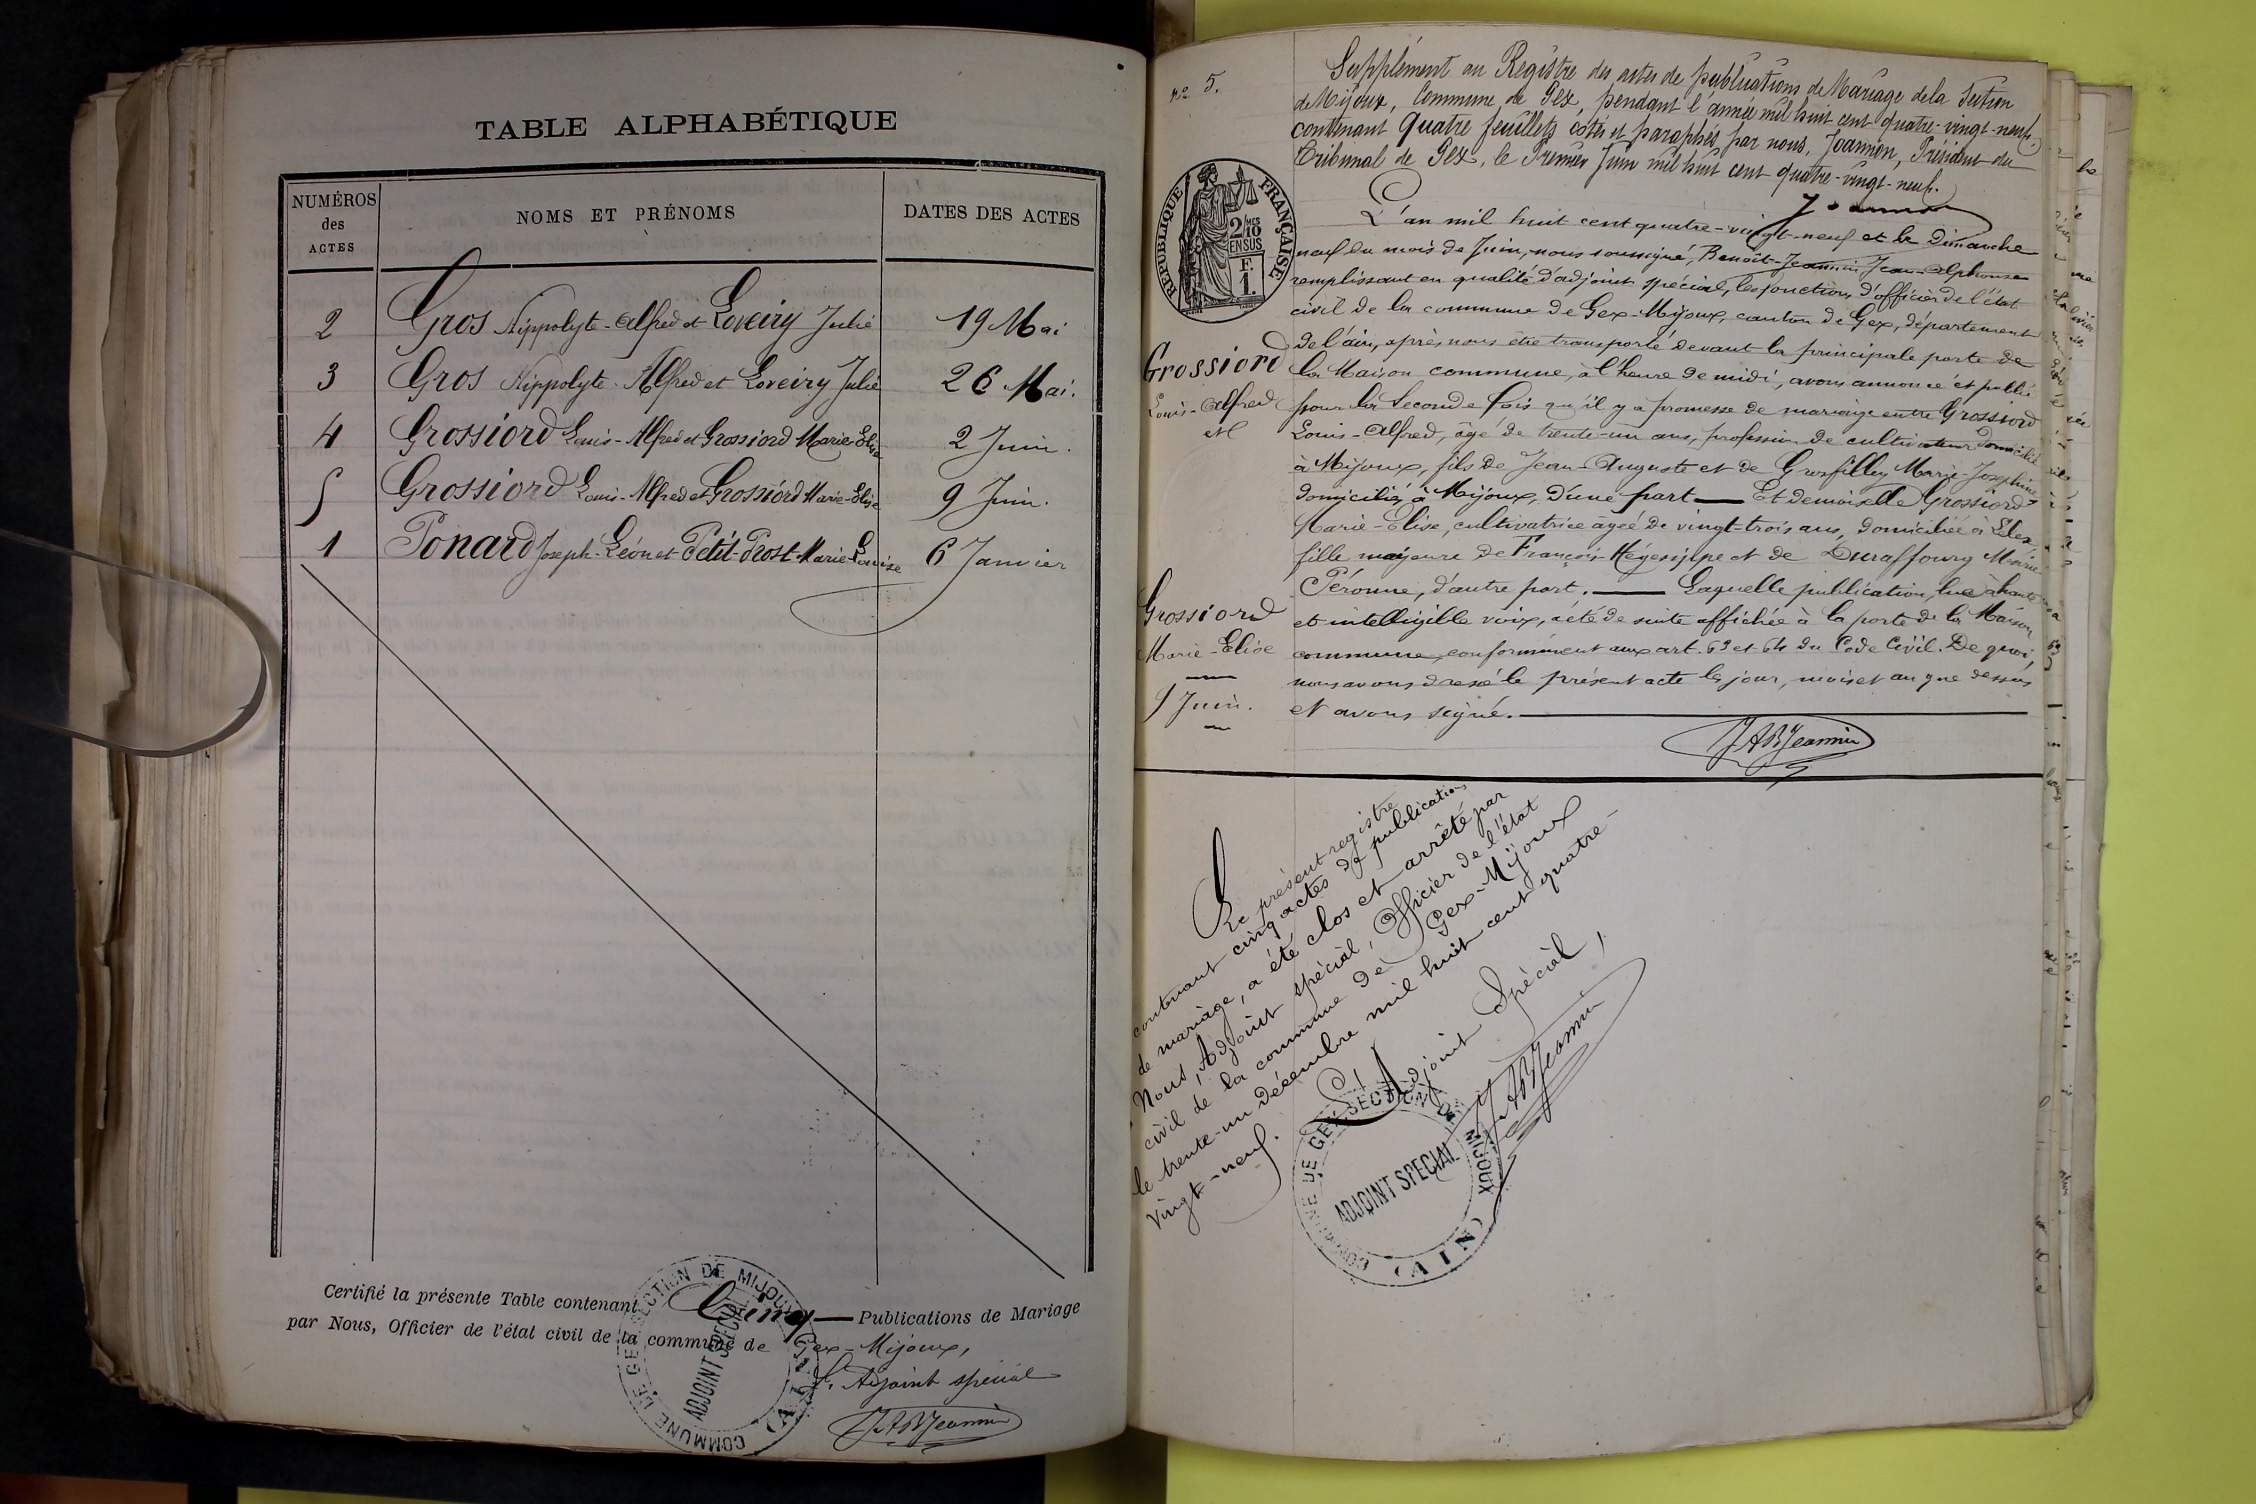 TABLE ALPHABÉTIQUE
NUMÉROS des ACTES
NOMS ET PRÉNOMS
DATES DES ACTES
2 Gros Hippolyte-Alfred et Loveiry Julie 19 Mai
3 Gros Hippolyte-Alfred et Loveiry Julie 26 Mai.
4 Grossiord Louis-Alfred et Grossiord Marie-Elise 2 Juin.
5 Grossiord Louis-Alfred et Grossiord Marie-Elise 9 Juin.
1 Ponard Joseph-Léon et Petit-Prost-Marie-Louise 6 Janvier
Certifié la présente Table contenant Cinq Publications de Mariage
par Nous, Officier de l'état civil de la commune de Gex-Mijoux,
L'Adjoint spécial
JABJeannin
COMMUNE DE GEX SECTION DE MIJOUX
ADJOINT SPECIAL
(AIN)
no 5.
Supplément au Registre des actes de publications de Mariage de la Section
de Mijoux, Commune de Gex, pendant l'année mil huit cent quatre-vingt-neuf,
contenant quatre feuillets cotés et paraphés par nous, Joannon, Président du
Tribunal de Gex, le Premier Juin mil huit cent quatre-vingt-neuf.
Joannon
REPUBLIQUE FRANÇAISE
2/10 EN SUS
F. 1.
L'an mil huit cent quatre-vingt-neuf et le Dimanche
neuf du mois de Juin, nous soussigné, Benoît-Jeannin Jean-Alphonse
remplissant en qualité d'adjoint spécial, les fonctions d'officier de l'état
civil de la commune de Gex-Mijoux, canton de Gex, département
de l'ain, après nous être transporté devant la principale porte de
la Maison commune, à l'heure de midi, avons annoncé et publié
pour la Seconde fois qu'il y a promesse de mariage entre Grossiord
Louis-Alfred, âgé de trente-un ans, profession de cultivateur domicilié
à Mijoux, fils de Jean-Auguste et de Grosfilley Marie-Joséphine
domiciliés à Mijoux, d'une part — Et demoiselle Grossiord
Marie-Elise, cultivatrice âgée de vingt-trois ans, domiciliée à Lélex,
fille majeure de François-Hégésippe et de Duraffourg Marie
Péronne, d'autre part. — Laquelle publication, lue à haute
et intelligible voix, a été de suite affichée à la porte de la Maison
commune, conformément aux art. 63 et 64 du Code Civil. De quoi,
nous avons dressé le présent acte les jour, mois et an que dessus
et avons signé.
JABJeannin
Grossiord
Louis-Alfred
et
Grossiord
Marie-Elise
9 Juin.
Le présent registre
contenant cinq actes de publications
de mariage, a été clos et arrêté par
Nous, Adjoint spécial, Officier de l'état
civil de la commune de Gex-Mijoux
le trente-un décembre mil huit cent quatre-
vingt-neuf.
L'Adjoint Spécial,
JABJeannin
COMMUNE DE GEX SECTION DE MIJOUX
ADJOINT SPECIAL
(AIN)